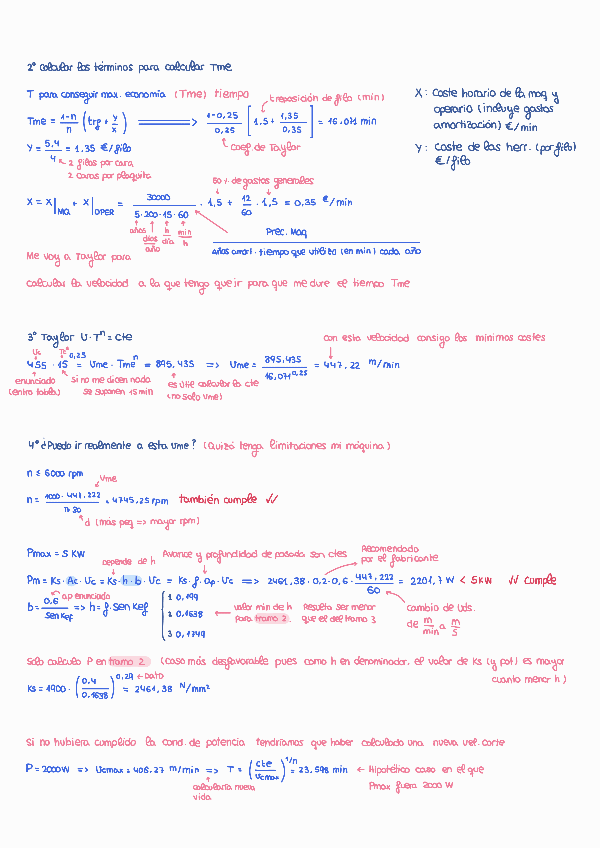 2º calcular los términos para calcular Tme
T para conseguir max. economía (Tme) tiempo
t reposición de filo (min)
Tme = 1-n/n (trf + y/x) => 1-0,25/0,25 [1,5 + 1,35/0,35] = 16,071 min
Coef. de Taylor
X: Coste horario de la maq y
operario (incluye gastos
amortización) €/min
Y: coste de las herr. (por filo)
€/filo
Y = 5,4/4 = 1,35 €/filo
2 filos por cara
2 caras por plaquita
50% de gastos generales
X = X|MQ + X|OPER = 30000/5·200·15·60 · 1,5 + 12/60 · 1,5 = 0,35 €/min
años días/año h/día min/h
Prec. Maq
años amort. · tiempo que utilizo (en min) cada año
Me voy a Taylor para
calcular la velocidad a la que tengo que ir para que me dure el tiempo Tme
3º Taylor U·Tⁿ = cte
con esta velocidad consigo los mínimos costes
455 · 15^0,25 = Ume · Tmeⁿ = 895,435 => Ume = 895,435/16,071^0,25 = 447,22 m/min
enunciado
(entra tabla)
si no me dicen nada
se suponen 15 min
es útil calcular la cte
(no solo Vme)
4º ¿Puedo ir realmente a esta Ume? (Quizá tenga limitaciones mi máquina)
n ≤ 6000 rpm
Vme
n = 1000 · 447,222/π·30 = 4745,25 rpm también cumple ✓✓
d (más peq => mayor rpm)
Pmax = 5 KW
depende de h
Avance y profundidad de pasada son ctes
Recomendado
por el fabricante
Pm = Ks · Ac · Uc = Ks · h · b · Uc = Ks · f · ap · Uc => 2461,38 · 0,2 · 0,6 · 447,222/60 = 2201,7 W < 5KW ✓✓ cumple
ap enunciado
b = 0,6/sen Kef => h = f · sen Kef
1 0,199
2 0,1638
3 0,1749
valor min de h
para tramo 2.
Resulta ser menor
que el del tramo 3
cambio de Uds.
de m/min a m/s
Solo calculo P en tramo 2 (caso más desfavorable pues como h en denominador, el valor de Ks (y pot) es mayor
cuanto menor h)
Ks = 1900 · (0,4/0,1638)^0,29 = 2461,38 N/mm²
← DATO
Si no hubiera cumplido la cond. de potencia tendríamos que haber calculado una nueva vel. corte
P = 2000W => Ucmax = 406,27 m/min => T = (cte/Ucmax)^1/n = 23,598 min ← Hipotético caso en el que
Pmax fuera 2000 W
calcularía nueva
vida